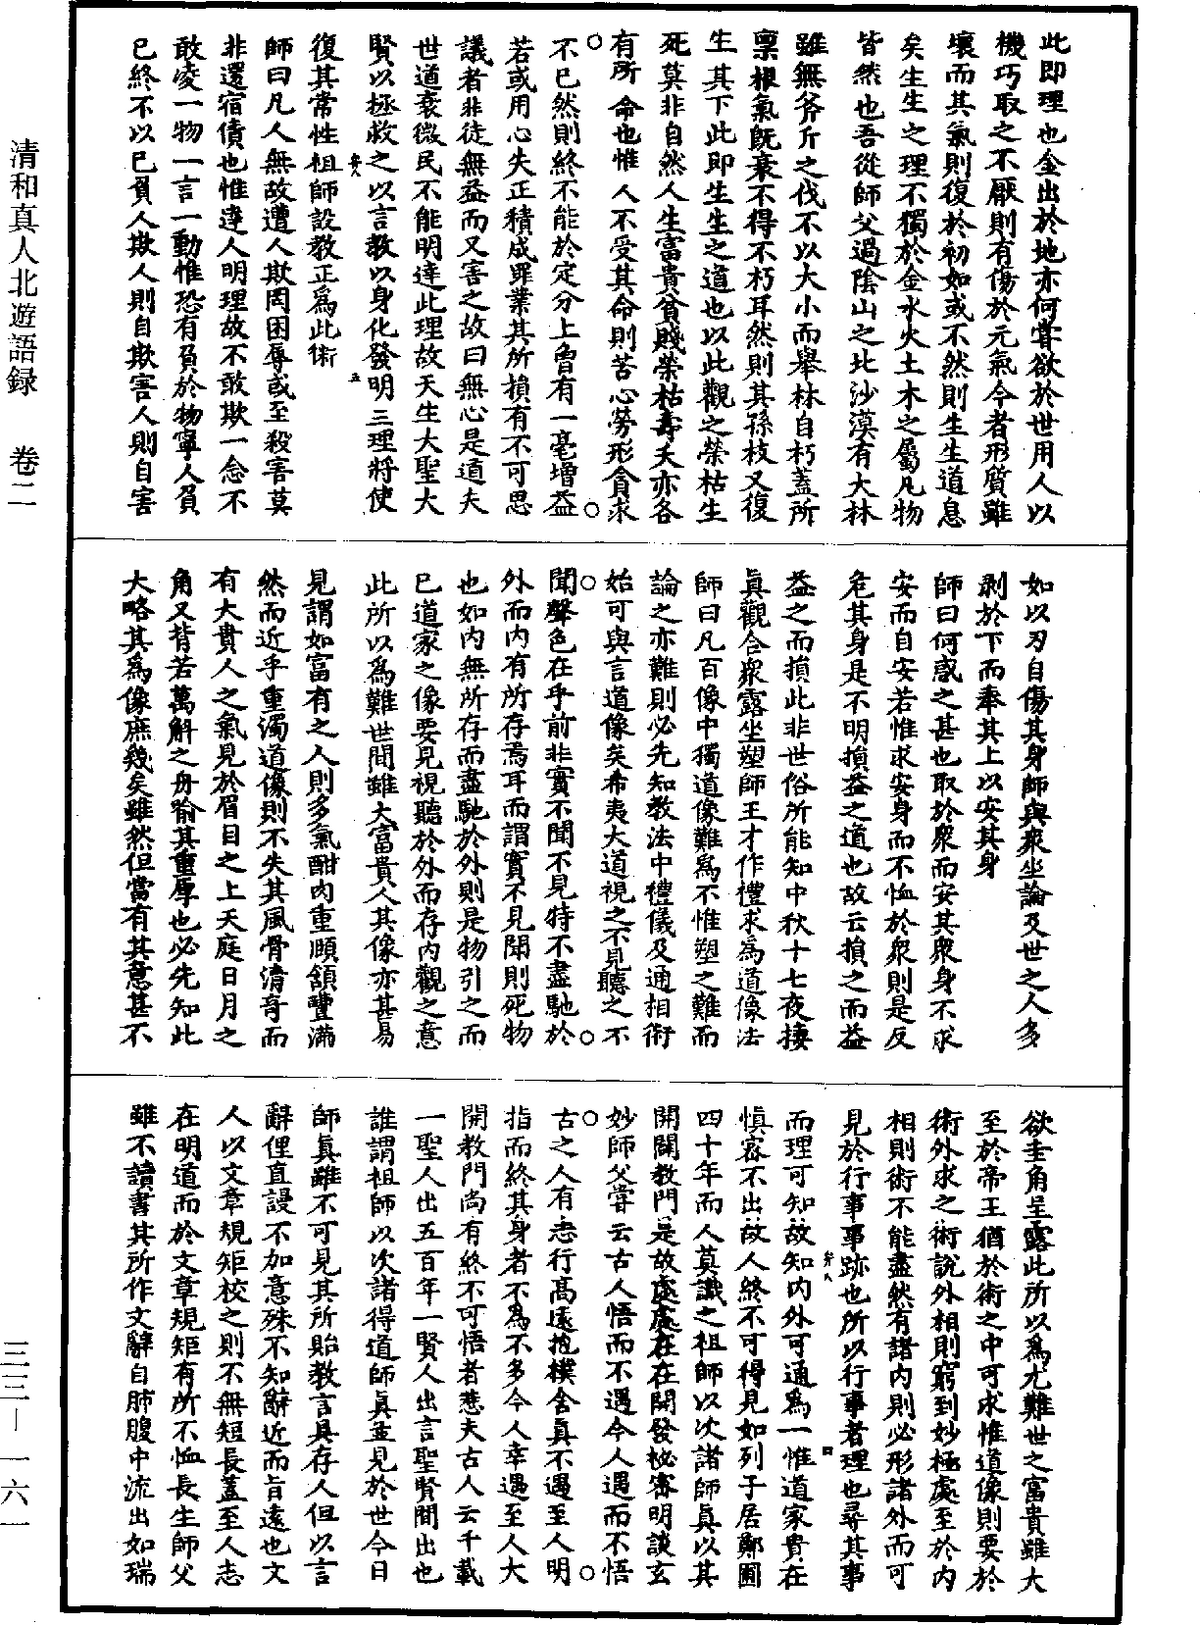 此即理也金出於地亦何嘗欲於世用人以
機巧取之不厭則有傷於元氣今者形質雖
壞而其氣則復於初如或不然則生生道息
矣生生之理不獨於金水火土木之屬凡物
皆然也吾從師父過陰山之北沙漠有大林
雖無斧斤之伐不以大小而舉林自朽蓋所
稟根氣既衰不得不朽耳然則其孫枝又復
生其下此即生生之道也以此觀之榮枯生
死莫非自然人生富貴貧賤榮枯壽夭亦各
有所命也惟人不受其命則苦心勞形貪求
不已然則終不能於定分上曾有一毫增益
若或用心失正積成罪業其所損有不可思
議者非徒無益而又害之故曰無心是道夫
世道衰微民不能明達此理故天生大聖大
賢以拯救之以言教以身化發明三理將使
復其常性祖師設教正為此術
師曰凡人無故遭人欺罔困辱或至殺害莫
非還宿債也惟達人明理故不敢欺一念不
敢凌一物一言一動惟恐有負於物寧人負
己終不以己負人欺人則自欺害人則自害
如以刃自傷其身師與眾坐論及世之人多
剝於下而奉其上以安其身
師曰何惑之甚也取於眾而安其眾身不求
安而自安若惟求安身而不恤於眾則是反
危其身是不明損益之道也故云損之而益
益之而損此非世俗所能知中秋十七夜棲
真觀合眾露坐塑師王才作禮求為道像法
師曰凡百像中獨道像難為不惟塑之難而
論之亦難則必先知教法中禮儀及通相術
始可與言道像矣希夷大道視之不見聽之不
聞聲色在乎前非實不聞不見特不盡馳於
外而內有所存焉耳而謂實不見聞則死物
也如內無所存而盡馳於外則是物引之而
已道家之像要見視聽於外而存內觀之意
此所以為難世間雖大富貴人其像亦甚易
見謂如富有之人則多氣酣肉重頤頷豐滿
然而近乎重濁道像則不失其風骨清奇而
有大貴人之氣見於眉目之上天庭日月之
角又背若萬斛之舟喻其重厚也必先知此
大略其為像庶幾矣雖然但當有其意甚不
欲圭角呈露此所以為尤難世之富貴雖大
至於帝王猶於術之中可求惟道像則要於
術外求之術說外相則窮到妙極處至於內
相則術不能盡然有諸內則必形諸外而可
見於行事事跡也所以行事者理也尋其事
而理可知故知內外可通為一惟道家貴在
慎密不出故人終不可得見如列子居鄭圃
四十年而人莫識之祖師以次諸師真以其
開闡教門是故處處在在開發秘密明談玄
妙師父嘗云古人悟而不遇今人遇而不悟
古之人有志行高遠抱樸含真不遇至人明
指而終其身者不為不多今人幸遇至人大
開教門尚有終不可悟者悲夫古人云千載
一聖人出五百年一賢人出言聖賢間出也
誰謂祖師以次諸得道師真並見於世今日
師真雖不可見其所貽教言具存人但以言
辭俚直謾不加意殊不知辭近而旨遠也文
人以文章規矩校之則不無短長蓋至人志
在明道而於文章規矩有所不恤長生師父
雖不讀書其所作文辭自肺腹中流出如瑞
清和真人北遊語録 卷二
三三—一六一